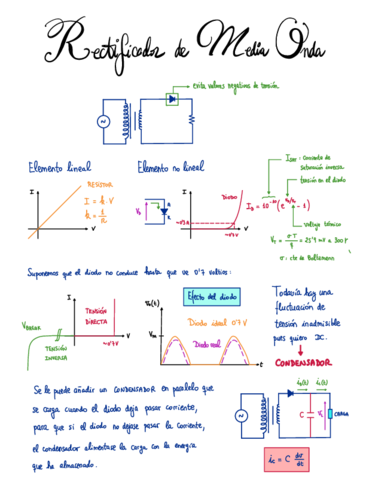 Rectificador de Media Onda
evita valores negativos de tensión
Elemento lineal
Elemento no lineal
RESISTOR
I = k · V
k = 1/R
I
V
I
DIODO
V
~0'7 V
I_D = 10^-10 (e^
- 1)
Saturación inversa
tensión en el diodo
Voltaje térmico
σ: cte de Boltzmann
Suponemos que el diodo no conduce hasta que ve 0'7 voltios:
I
TENSIÓN
DIRECTA
V
~0'7V
TENSIÓN
INVERSA
Efecto del diodo
Diodo ideal 0'7 V
Diodo real
t
Todavía hay una
fluctuación de
tensión inadmisible
pues quiero DC.
→ CONDENSADOR
Se le puede añadir un CONDENSADOR en paralelo que
se carga cuando el diodo deja pasar corriente,
para que si el diodo no dejase pasar la corriente,
el condensador alimentase la carga con la energía
que ha almacenado.
C
CARGA
i_c = C dv/dt